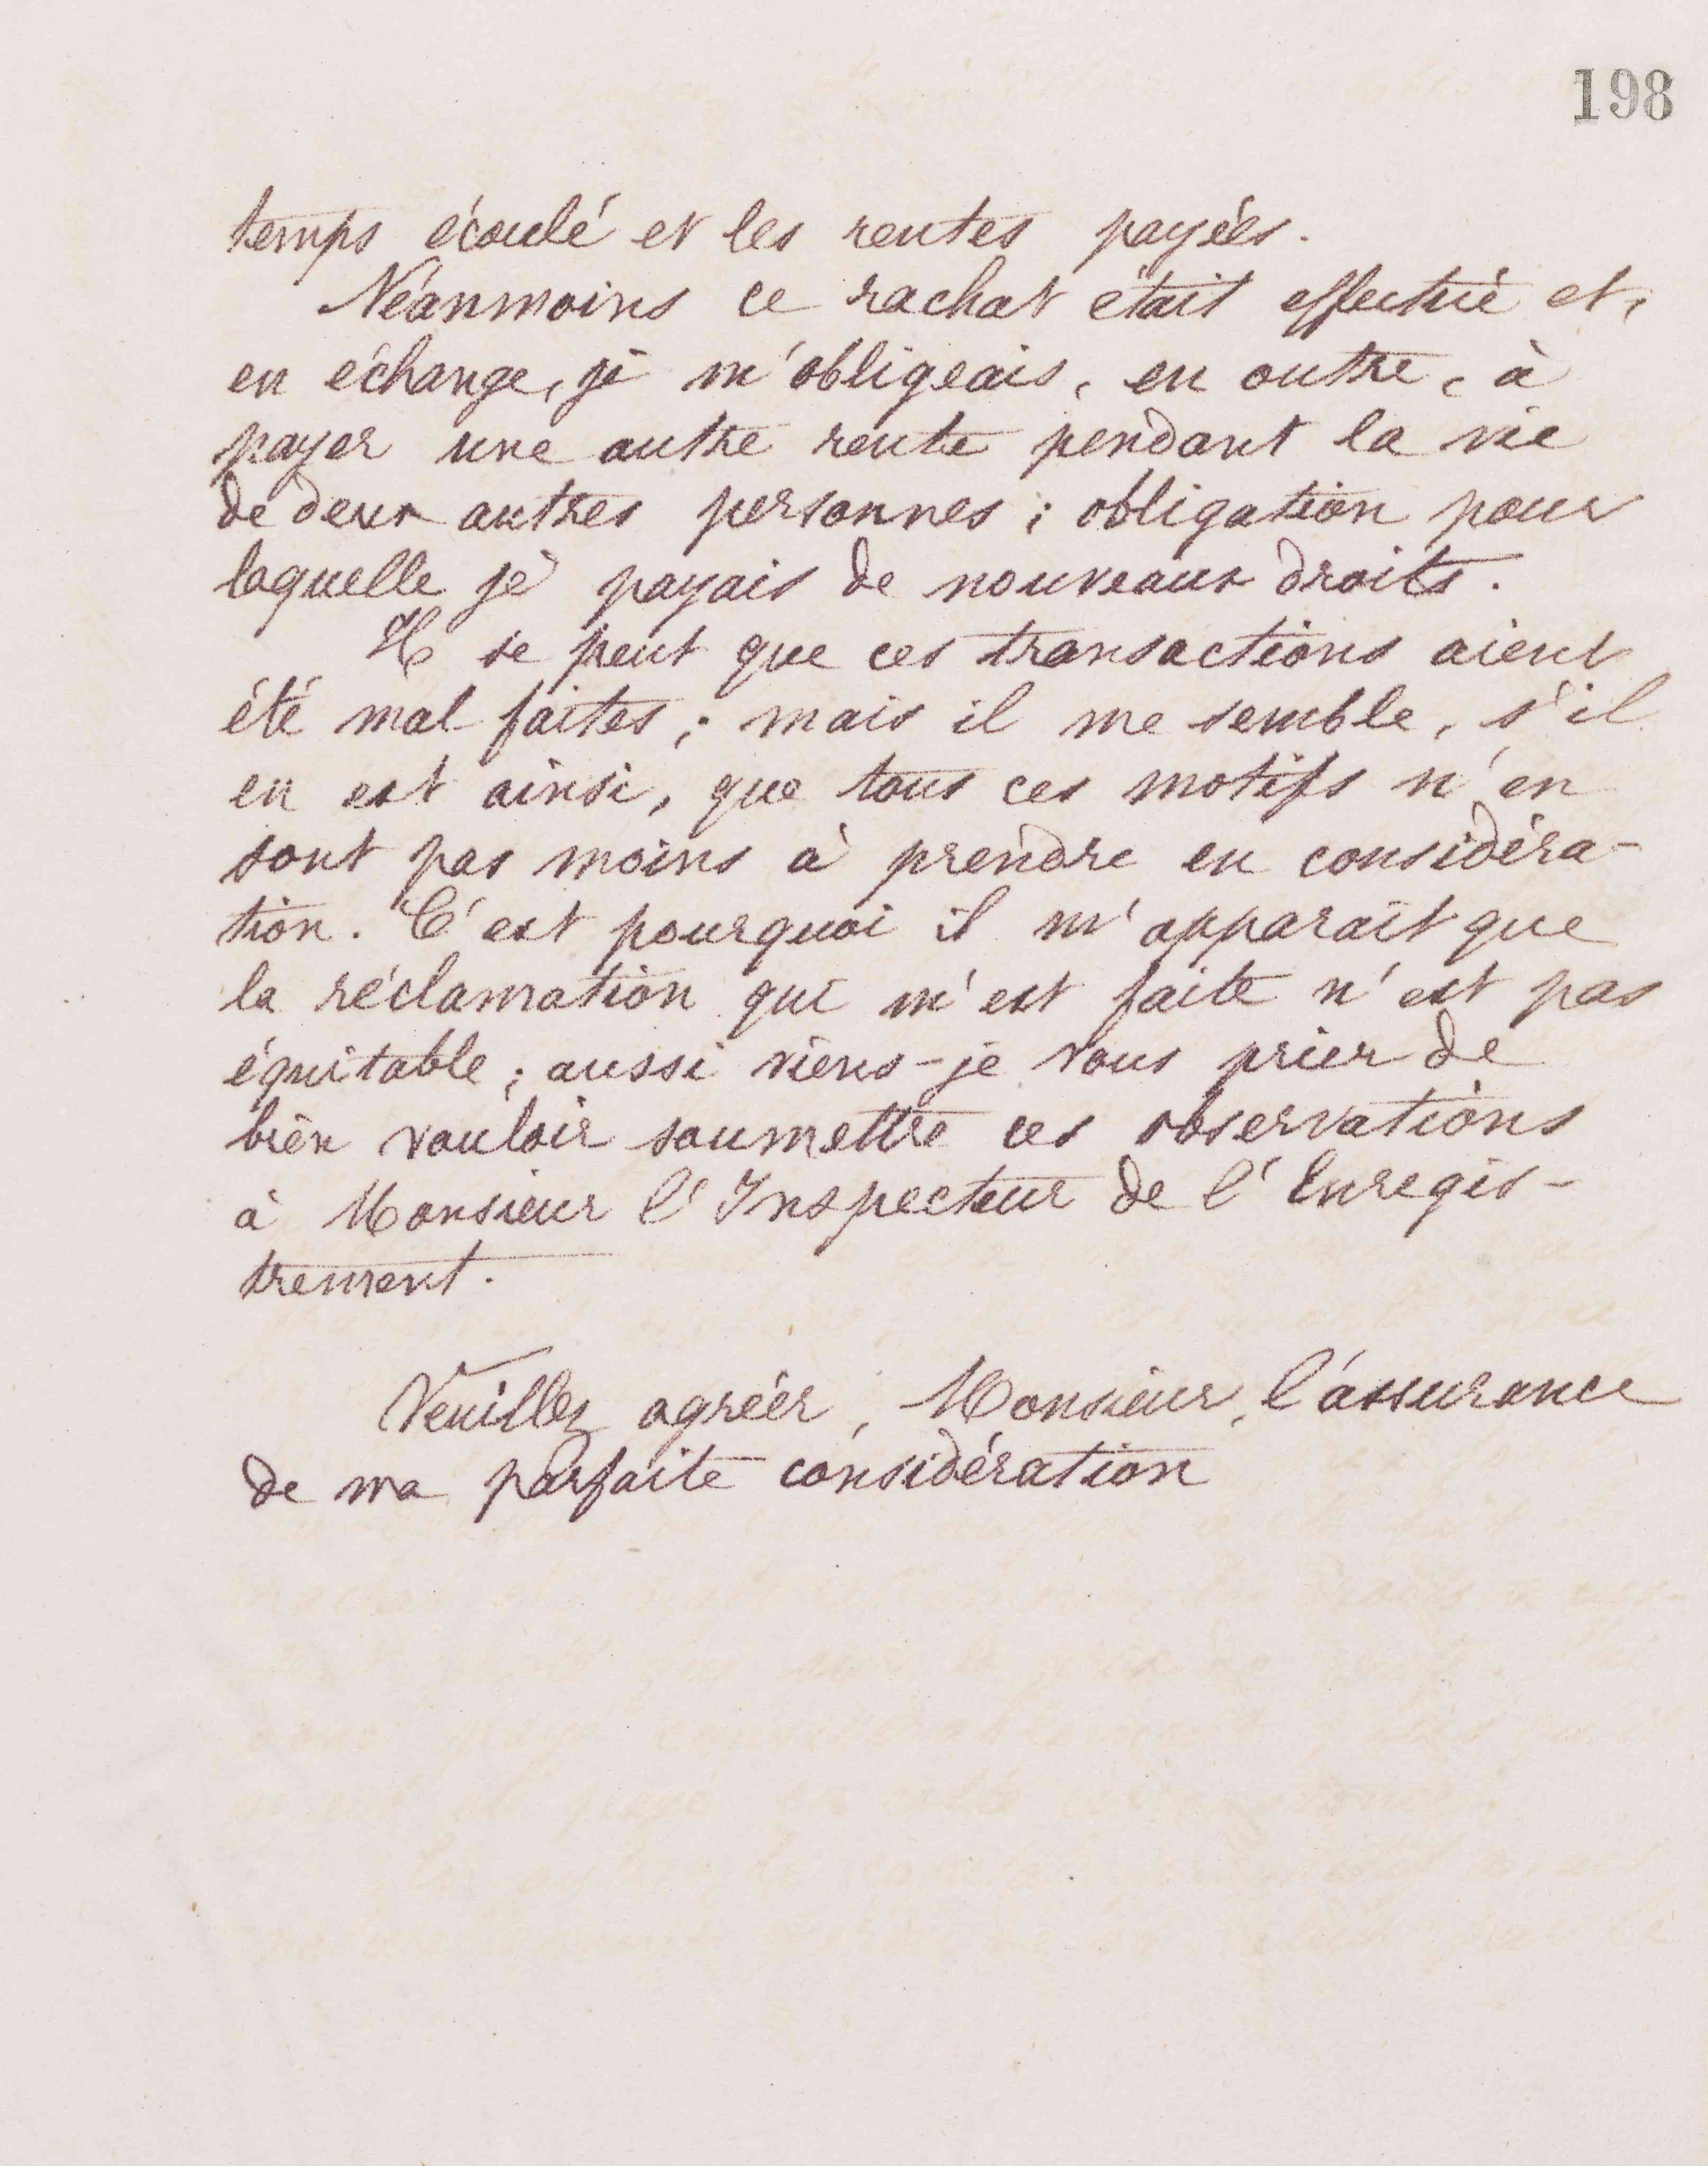 198
temps écoulé et les rentes payées.
Néanmoins ce rachat était effectué et,
en échange, je m'obligeais, en outre, à
payer une autre rente pendant la vie
de deux autres personnes ; obligation pour
laquelle je payais de nouveaux droits.
Il se peut que ces transactions aient
été mal faites ; mais il me semble, s'il
en est ainsi, que tous ces motifs n'en
sont pas moins à prendre en considéra-
tion. C'est pourquoi il m'apparaît que
la réclamation qui m'est faite n'est pas
équitable ; aussi viens-je vous prier de
bien vouloir soumettre ces observations
à Monsieur l'Inspecteur de l'Enregis-
trement.
Veuillez agréer, Monsieur, l'assurance
de ma parfaite considération